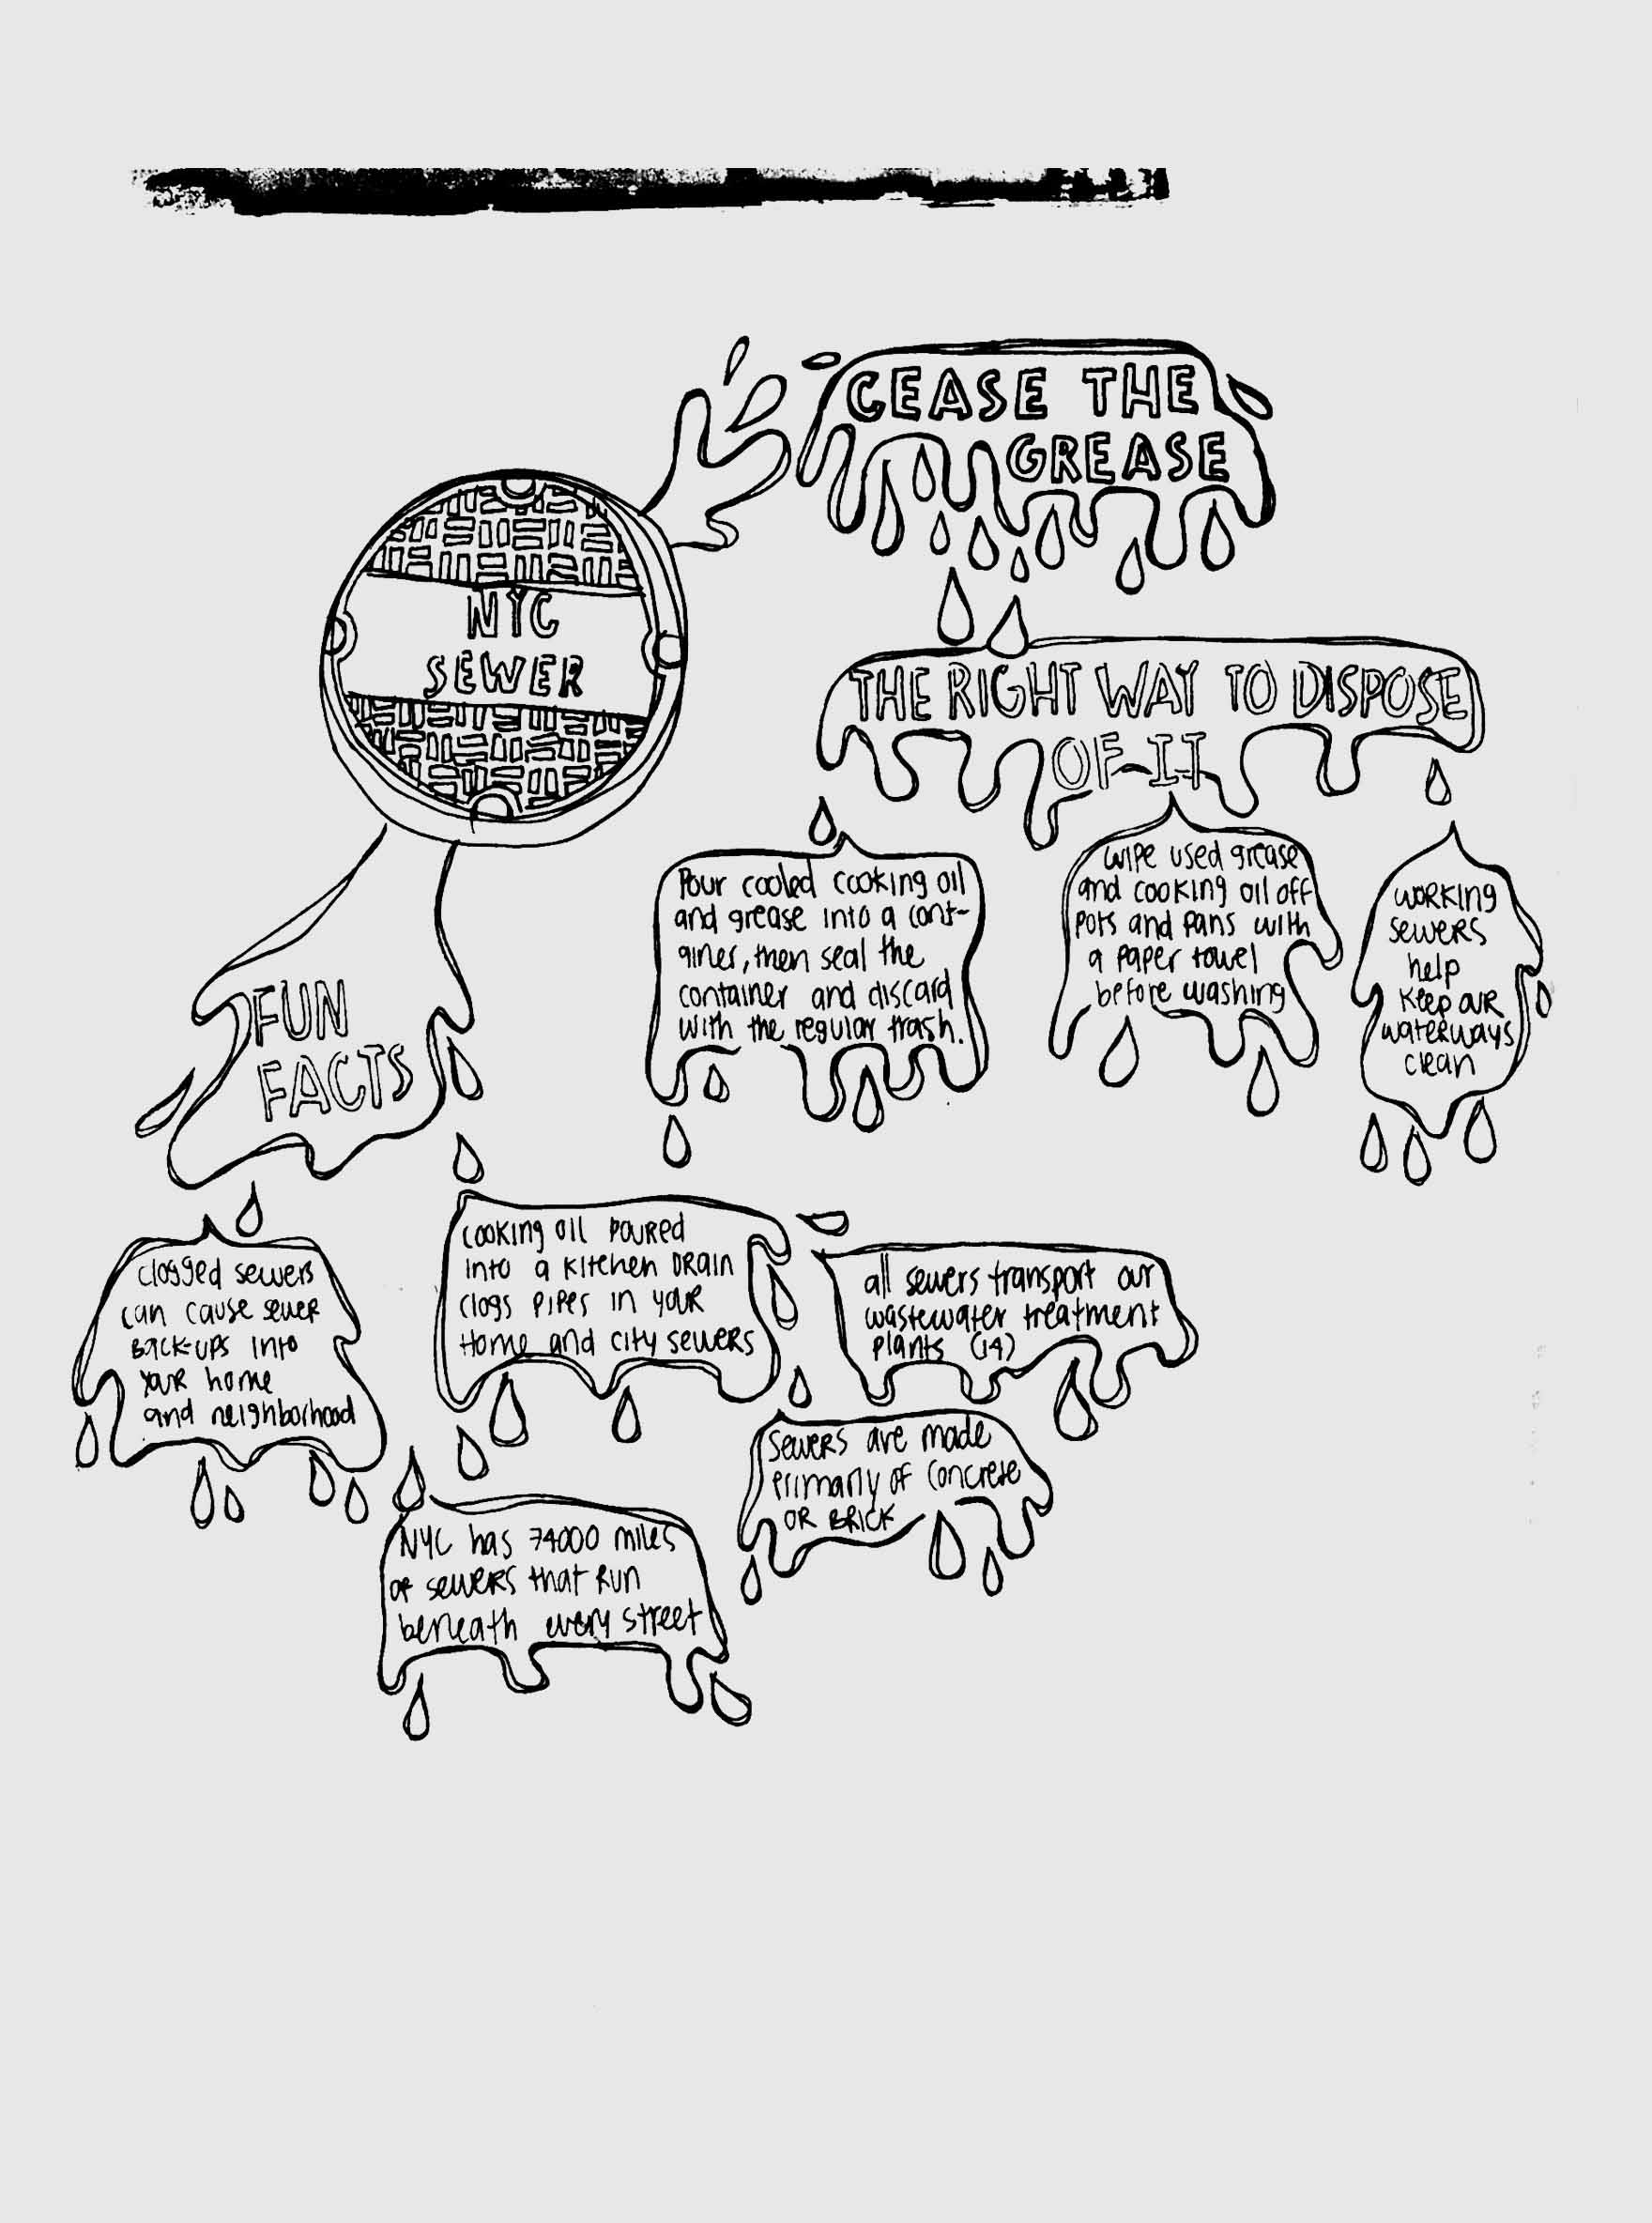 CEASE THE
GREASE
NYC
SEWER
THE RIGHT WAY TO DISPOSE
OF IT
Pour cooled cooking oil
and grease into a cont-
ainer, then seal the
container and discard
with the regular trash.
wipe used grease
and cooking oil off
pots and pans with
a paper towel
before washing
working
sewers
help
keep our
waterways
clean
FUN
FACTS
clogged sewers
can cause sewer
back-ups into
your home
and neighborhood
cooking oil poured
into a kitchen drain
clogs pipes in your
home and city sewers
all sewers transport our
wastewater treatment
plants (14)
sewers are made
primarily of concrete
or brick
NYC has 74000 miles
of sewers that run
beneath every street